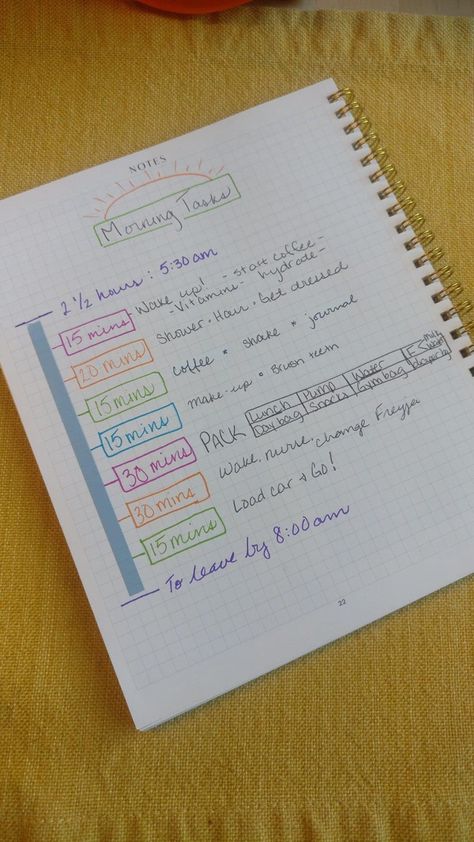 NOTES
Morning Tasks
2 1/2 hours: 5:30am
15 mins Wake up! - start coffee -
- Vitamins - hydrate -
20 mins Shower · Hair · Get dressed
15 mins coffee * shake * journal
15 mins make-up * Brush teeth
30 mins PACK Lunch Pump Water
Day bag Snacks Gym bag diapers
30 mins Wake, nurse, change Freyja
15 mins Load car → Go!
To leave by 8:00am
22